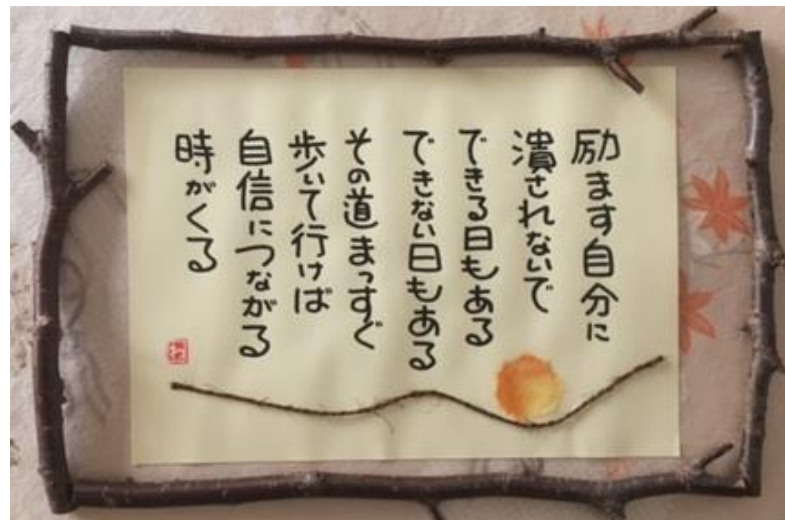 励ます自分に
潰されないで
できる日もある
できない日もある
その道まっすぐ
歩いて行けば
自信につながる
時がくる
わ